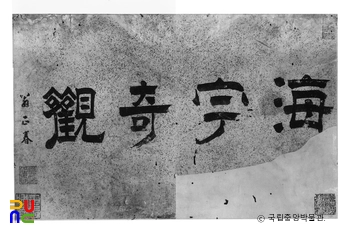 海宇奇觀
翁正春
© 국립중앙박물관